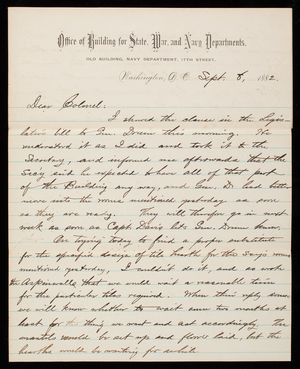 Office of Building for State, War, and Navy Departments.
OLD BUILDING, NAVY DEPARTMENT, 17TH STREET,
Washington, D. C. Sept. 8, 1882.
Dear Colonel:
I showed the clause in the Legis-
lative bill to Gen. Drum this morning. He
understood it as I did and took it to the
Secretary, and informed me afterwards that the
Secy said he expected to have all of that part
of the Building any way, and Gen. D. had better
move into the rooms mentioned yesterday as soon
as they are ready. They will therefore go in next
week as soon as Capt. Davis lets Gen. Drum know.
On trying today to find a proper substitute
for the specified design of tile hearth for the Secy's room
mentioned yesterday, I couldn't do it, and so wrote
to that we would wait a reasonable time
for the particular tiles required. When their reply comes
we will know whether to wait some two months at
least for the thing we want and act accordingly. The
mantels would be set up and floors laid, but the
hearths would be waiting for awhile.